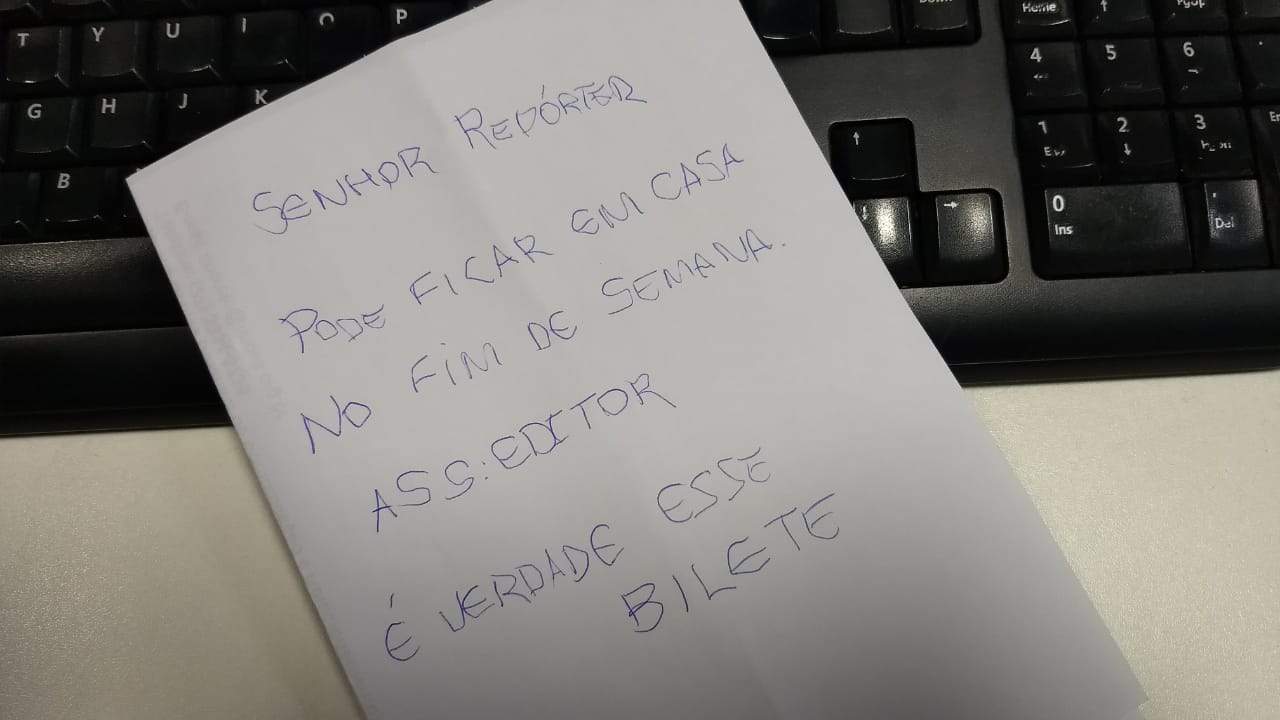 T Y U I O P
Home ↑ PgUp
G H J K
4 ← 5 6 →
B
↑
1 End 2 ↓ 3
↓ →
0 Ins . Del
SENHOR REPÓRTER
PODE FICAR EM CASA
NO FIM DE SEMANA.
ASS: EDITOR
É VERDADE ESSE
BILETE